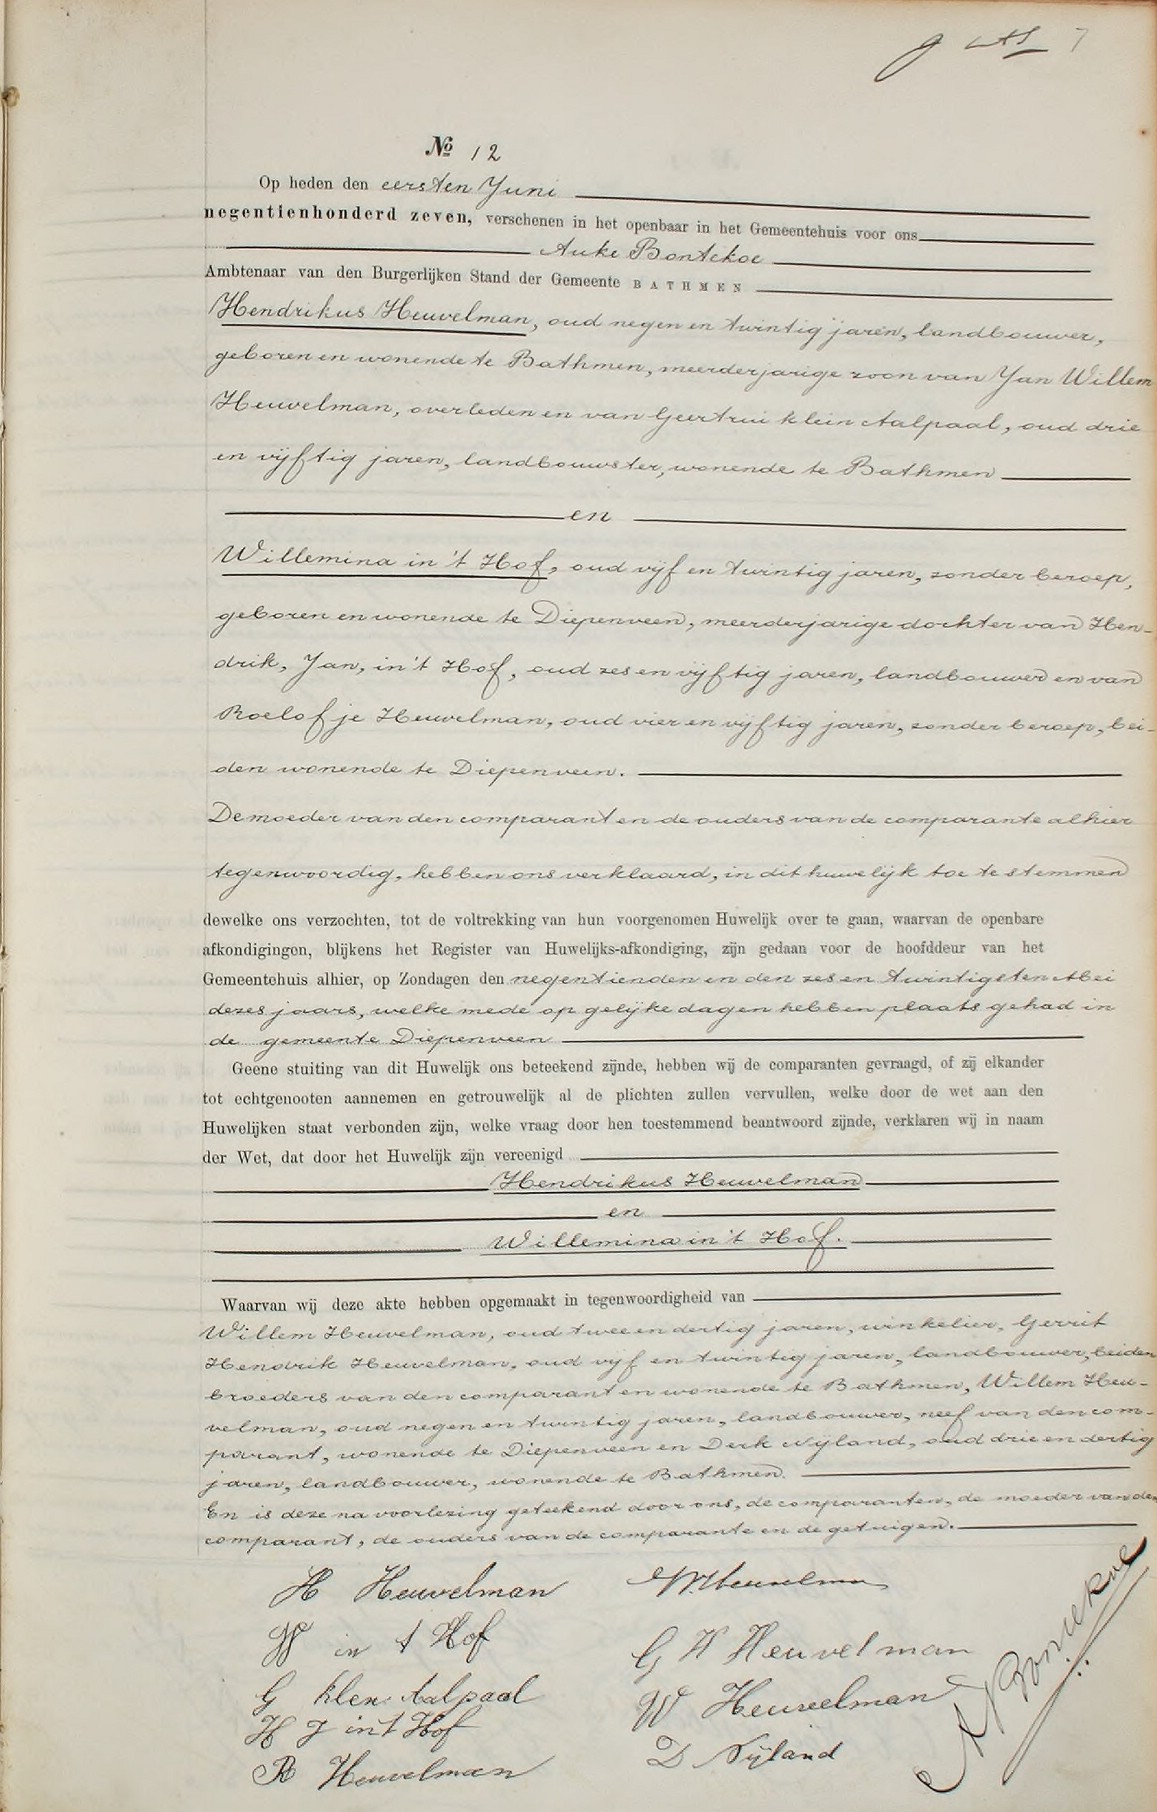 7
№ 12
Op heden den eersten Juni
negentienhonderd zeven, verschenen in het openbaar in het Gemeentehuis voor ons
Auke Bontekoe
Ambtenaar van den Burgerlijken Stand der Gemeente BATHMEN
Hendrikus Heuvelman, oud negen en twintig jaren, landbouwer,
geboren en wonende te Bathmen, meerderjarige zoon van Jan Willem
Heuvelman, overleden en van Geertrui klein Aalpaal, oud drie
en vijftig jaren, landbouwster, wonende te Bathmen
en
Willemina in 't Hof, oud vijf en twintig jaren, zonder beroep,
geboren en wonende te Diepenveen, meerderjarige dochter van Hen-
drik, Jan, in 't Hof, oud zes en vijftig jaren, landbouwer en van
Roelofje Heuvelman, oud vier en vijftig jaren, zonder beroep, bei-
den wonende te Diepenveen.
De moeder van den comparant en de ouders van de comparante alhier
tegenwoordig, hebben ons verklaard, in dit huwelijk toe te stemmen
dewelke ons verzochten, tot de voltrekking van hun voorgenomen Huwelijk over te gaan, waarvan de openbare
afkondigingen, blijkens het Register van Huwelijks-afkondiging, zijn gedaan voor de hoofddeur van het
Gemeentehuis alhier, op Zondagen den negentienden en den zes en twintigsten Mei
dezes jaars, welke mede op gelijke dagen hebben plaats gehad in
de gemeente Diepenveen
Geene stuiting van dit Huwelijk ons beteekend zijnde, hebben wij de comparanten gevraagd, of zij elkander
tot echtgenooten aannemen en getrouwelijk al de plichten zullen vervullen, welke door de wet aan den
Huwelijken staat verbonden zijn, welke vraag door hen toestemmend beantwoord zijnde, verklaren wij in naam
der Wet, dat door het Huwelijk zijn vereenigd
Hendrikus Heuvelman
en
Willemina in 't Hof.
Waarvan wij deze akte hebben opgemaakt in tegenwoordigheid van
Willem Heuvelman, oud twee en dertig jaren, winkelier, Gerrit
Hendrik Heuvelman, oud vijf en twintig jaren, landbouwer, beiden
broeders van den comparant en wonende te Bathmen, Willem Heu-
velman, oud negen en twintig jaren, landbouwer, neef van den com-
parant, wonende te Diepenveen en Derk Nijland, oud drie en dertig
jaren, landbouwer, wonende te Bathmen.
En is deze na voorlezing geteekend door ons, de comparanten, de moeder van den
comparant, de ouders van de comparante en de getuigen.
H Heuvelman
W Heuvelman
W in t Hof
G H Heuvelman
G klein Aalpaal
W Heuvelman
H J in t Hof
D Nijland
R Heuvelman
A Bontekoe